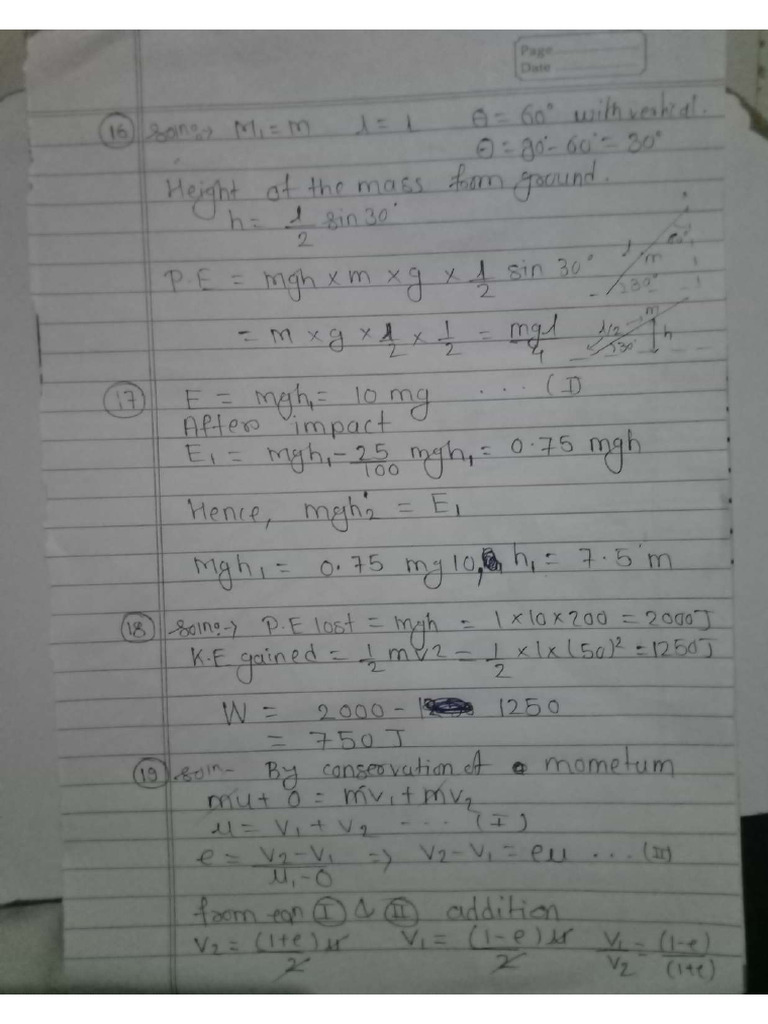 Page
Date
(16) Soln:→ M₁ = m l = l θ = 60° with vertical.
θ = 90° - 60° = 30°
Height of the mass from ground.
h = l/2 sin 30°
P.E = mgh × m × g × l/2 sin 30°
= m × g × l/2 × 1/2 = mgl/4
l m
30°
l/2 m h
30°
(17) E = mgh₁ = 10 mg . . . (I)
After impact
E₁ = mgh₁ - 25/100 mgh₁ = 0.75 mgh
Hence, mgh₂ = E₁
mgh₁ = 0.75 mg10, h₁ = 7.5 m
(18) Soln:→ P.E lost = mgh = 1 × 10 × 200 = 2000J
K.E gained = 1/2 mv2 = 1/2 × 1 × (50)² = 1250J
W = 2000 - 1250
= 750 J
(19) Soln- By conservation of mometum
mu + 0 = mv₁ + mv₂
u = v₁ + v₂ --- (I)
e = v₂ - v₁/u₁ - 0 => v₂ - v₁ = eu ... (II)
from eqn (I) & (II) addition
v₂ = (1+e)u/2 v₁ = (1-e)u/2 v₁/v₂ = (1-e)/(1+e)